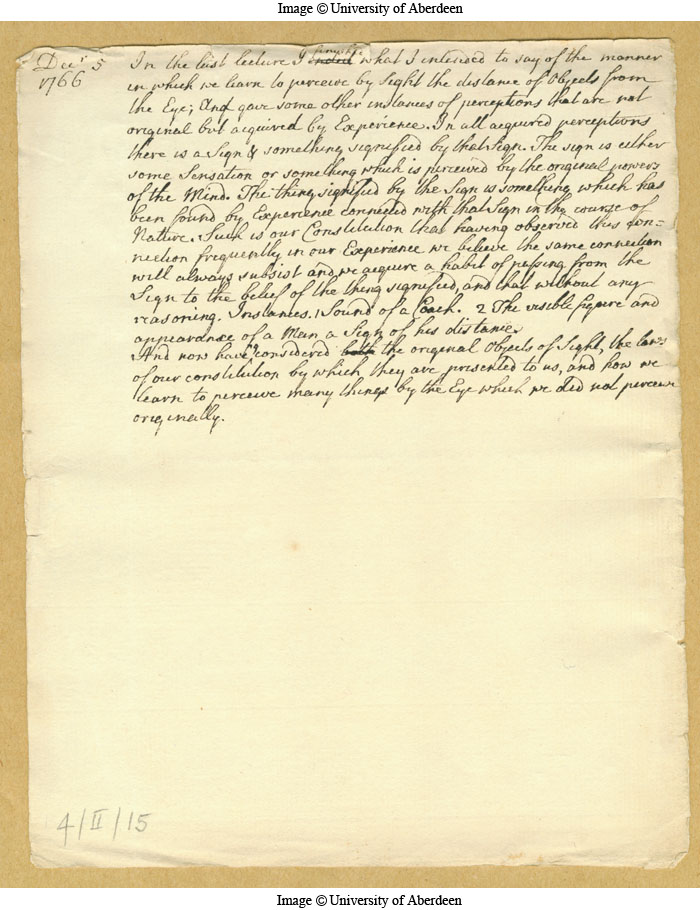 Image © University of Aberdeen
Decr 5
1766
In the last lecture I finished ended what I intended to say of the manner
in which we learn to perceive by Sight the distance of Objects from
the Eye; And gave some other instances of perceptions that are not
original but acquired by Experience. In all acquired perceptions
there is a Sign & something signified by that Sign. The sign is either
some Sensation or something which is perceived by the original powers
of the Mind. The thing signified by the Sign is something which has
been found by Experience connected with that Sign in the course of
Nature. Such is our Constitution that having observed this con=
nection frequently in our Experience we believe the same connection
will always subsist and we acquire a habit of passing from the
Sign to the belief of the thing signified, and that without any
reasoning. Instances. 1 Sound of a Coach. 2 The visible figure and
appearance of a Man a Sign of his distance.
And now have considered both the original Objects of Sight, the laws
of our constitution by which they are presented to us, and how we
learn to perceive many things by the Eye which we did not perceive
originally.
4/II/15
Image © University of Aberdeen